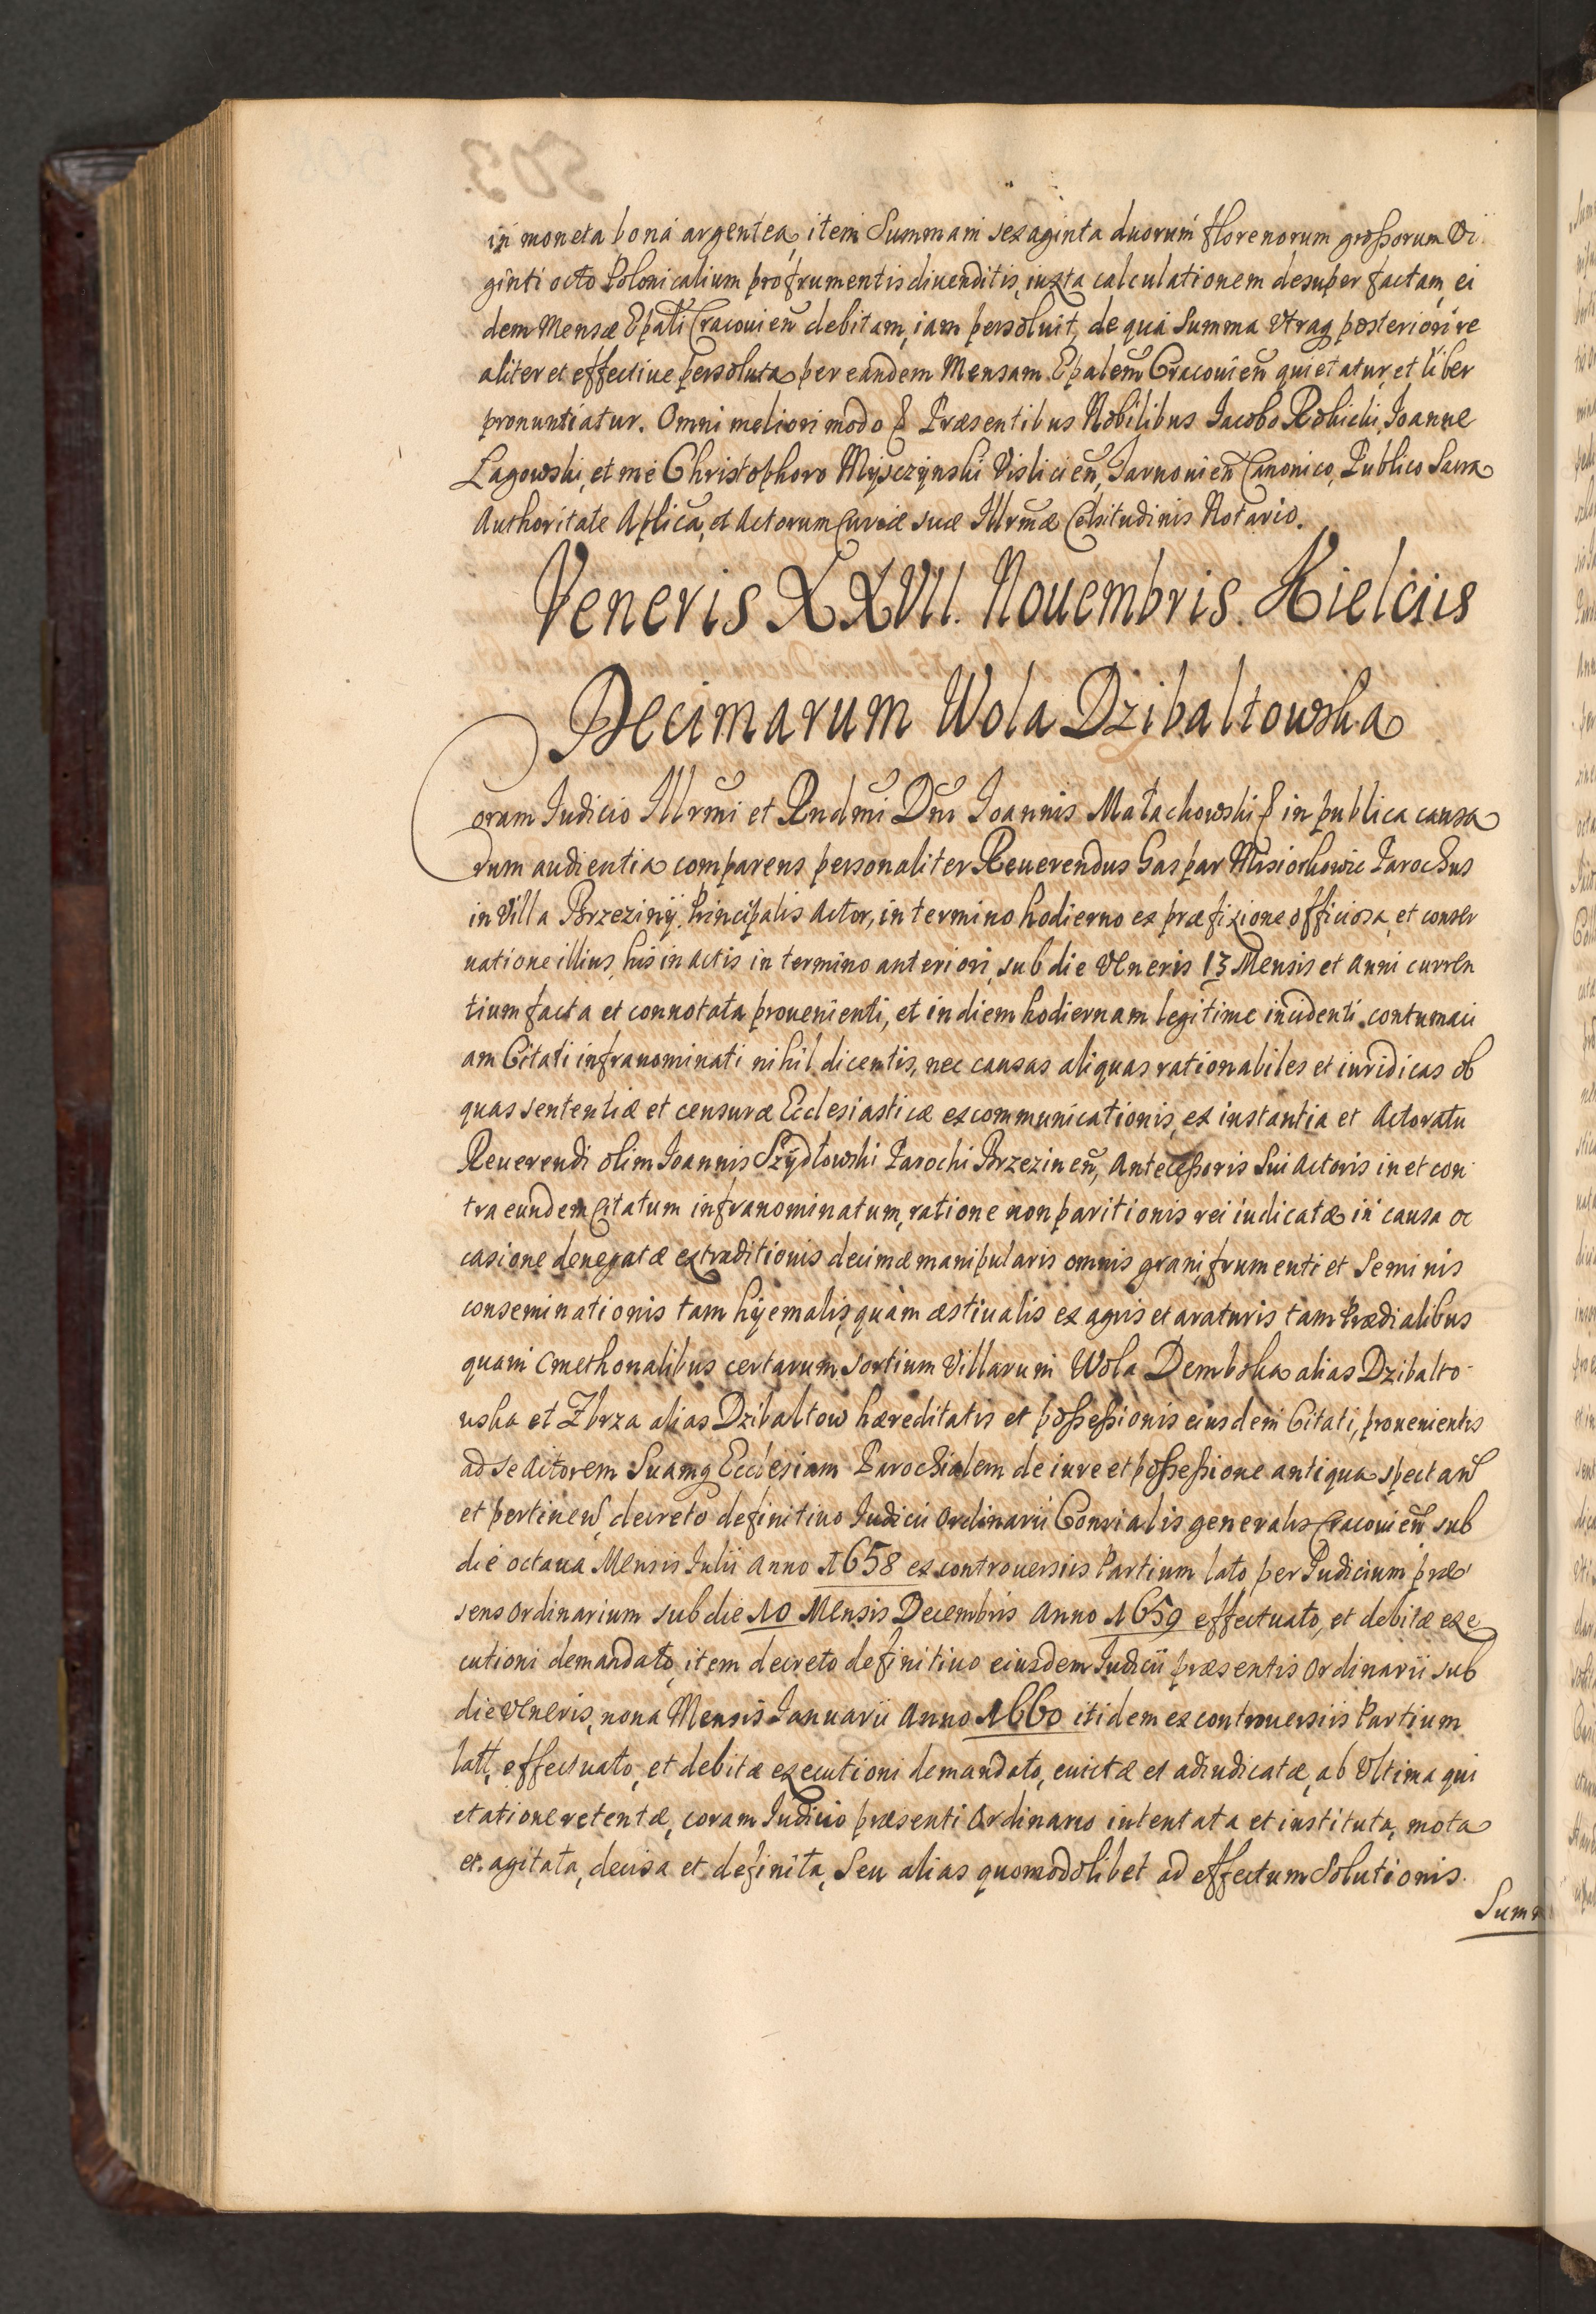 in moneta bona argentea, item Summam sexaginta duorum florenorum grossorum Vi
ginti octo Polonicalium pro frumentis divenditis, iuxta calculationem desuper factam, ei
dem Mensæ Epali Cracovien debitam, iam persolvit, de qua Summa Utraq posteriori re
aliter et effective persoluta per eandem Mensam Epalem Cracovien quietatur, et liber
pronuntiatur. Omni meliori modo & Præsentibus Nobilibus Jacobo Robicki, Joanne
Lagowski, et me Christophoro Myjsczynski Vislicien, Tarnovien Canonico, Publico Sacra
Authoritate Aplica, et Actorum Curiæ suæ Illrmæ Celsitudinis Notario.
Veneris XXVII. Nouembris. Kielciis
Decimarum Wola Dzibaltowska
Coram Judicio Illrmi et Rndmi Dni Joannis Małachowski & in publica causa
rum audientia comparens personaliter Reuerendus Gaspar Misiorkowic Parochus
in Villa Brzeziny. Principalis Actor, in termino hodierno ex præfixione officiosa, et conser
uatione illius, his in Actis in termino anteriori, sub die Veneris 13 Mensis et Anni curren
tium facta et connotata prouenienti, et in diem hodiernam legitime incidenti contumaci
am Citati infranominati nihil dicentis, nec causas aliquas rationabiles et iuridicas ob
quas sententiæ et censuræ Ecclesiasticæ excommunicationis, ex instantia et Actoratu
Reuerendi olim Joannis Szydłowski Parochi Brzezinen, Antecessoris Sui Actoris in et con
tra eundem Citatum infranominatum, ratione non paritionis rei iudicatæ in causa oc
casione denegatæ extraditionis decimæ manipularis omnis grani, frumenti et Seminis
conseminationis tam hyemalis, quam æstiualis ex agris et araturis tam Prædialibus
quam Cmethonalibus certarum sortium Villarum Wola Dembska alias Dzibalto
uska et Zbrza alias Dzibaltow hæreditatis et possessionis eiusdem Citati, prouenientis
ad se Actorem Suamq Ecclesiam Parochialem de iure et possessione antiqua spectan
et pertinen, decreto definitiuo Judicii Ordinarii Consialis generalis Cracouien sub
die octaua Mensis Julii Anno 1658 ex controuersiis Partium lato per Judicium præ
sens Ordinarium sub die 10 Mensis Decembris Anno 1659 effectuato, et debitæ exe
cutioni demandato, item decreto definitiuo eiusdem Judicii præsentis Ordinarii sub
die Veneris, nona Mensis Januarii Anno 1660 itidem ex controuersiis Partium
latt, effectuato, et debitæ executioni demandato, euictæ et adiudicatæ, ab Ultima qui
etatione retentæ, coram Judicio præsenti Ordinario intentata et instituta, mota
et agitata, decisa et definita, Seu alias quomodolibet ad effectum Solutionis
Summ